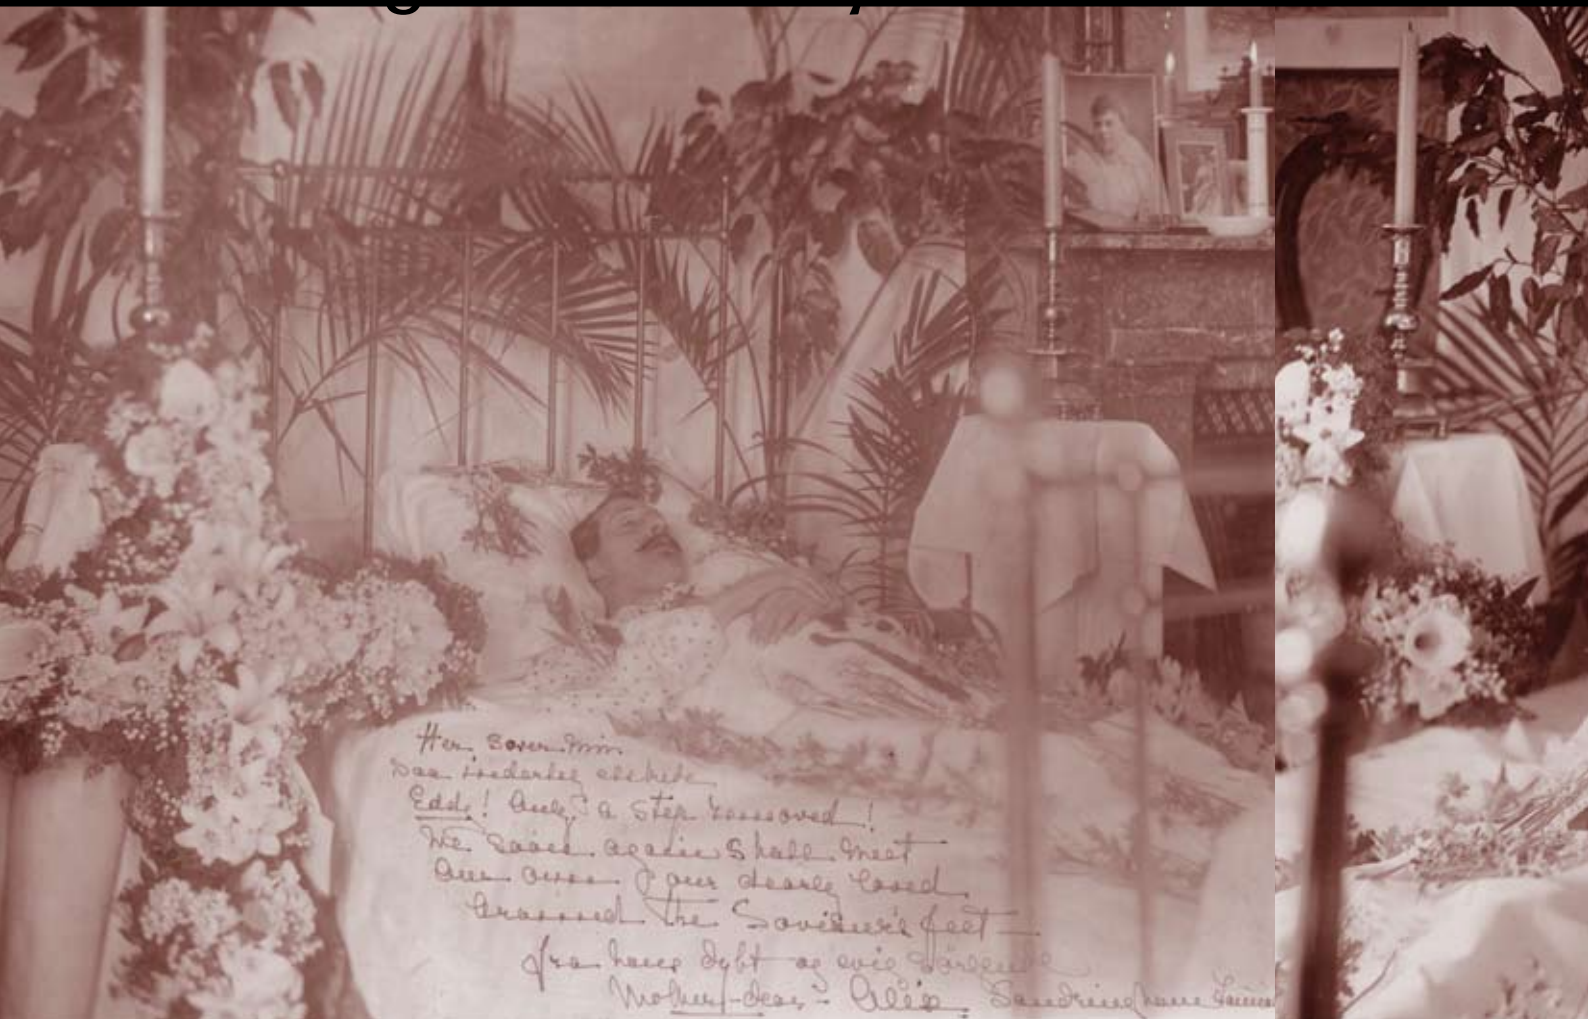 Her sover min
saa inderlig elskede
Eddy! Only a step removed!
We soon again shall meet
Our own our dearly loved
Around the Saviour's feet —
fra hans dybt og evig sørgende
Motherdear — Alix. Sandringham